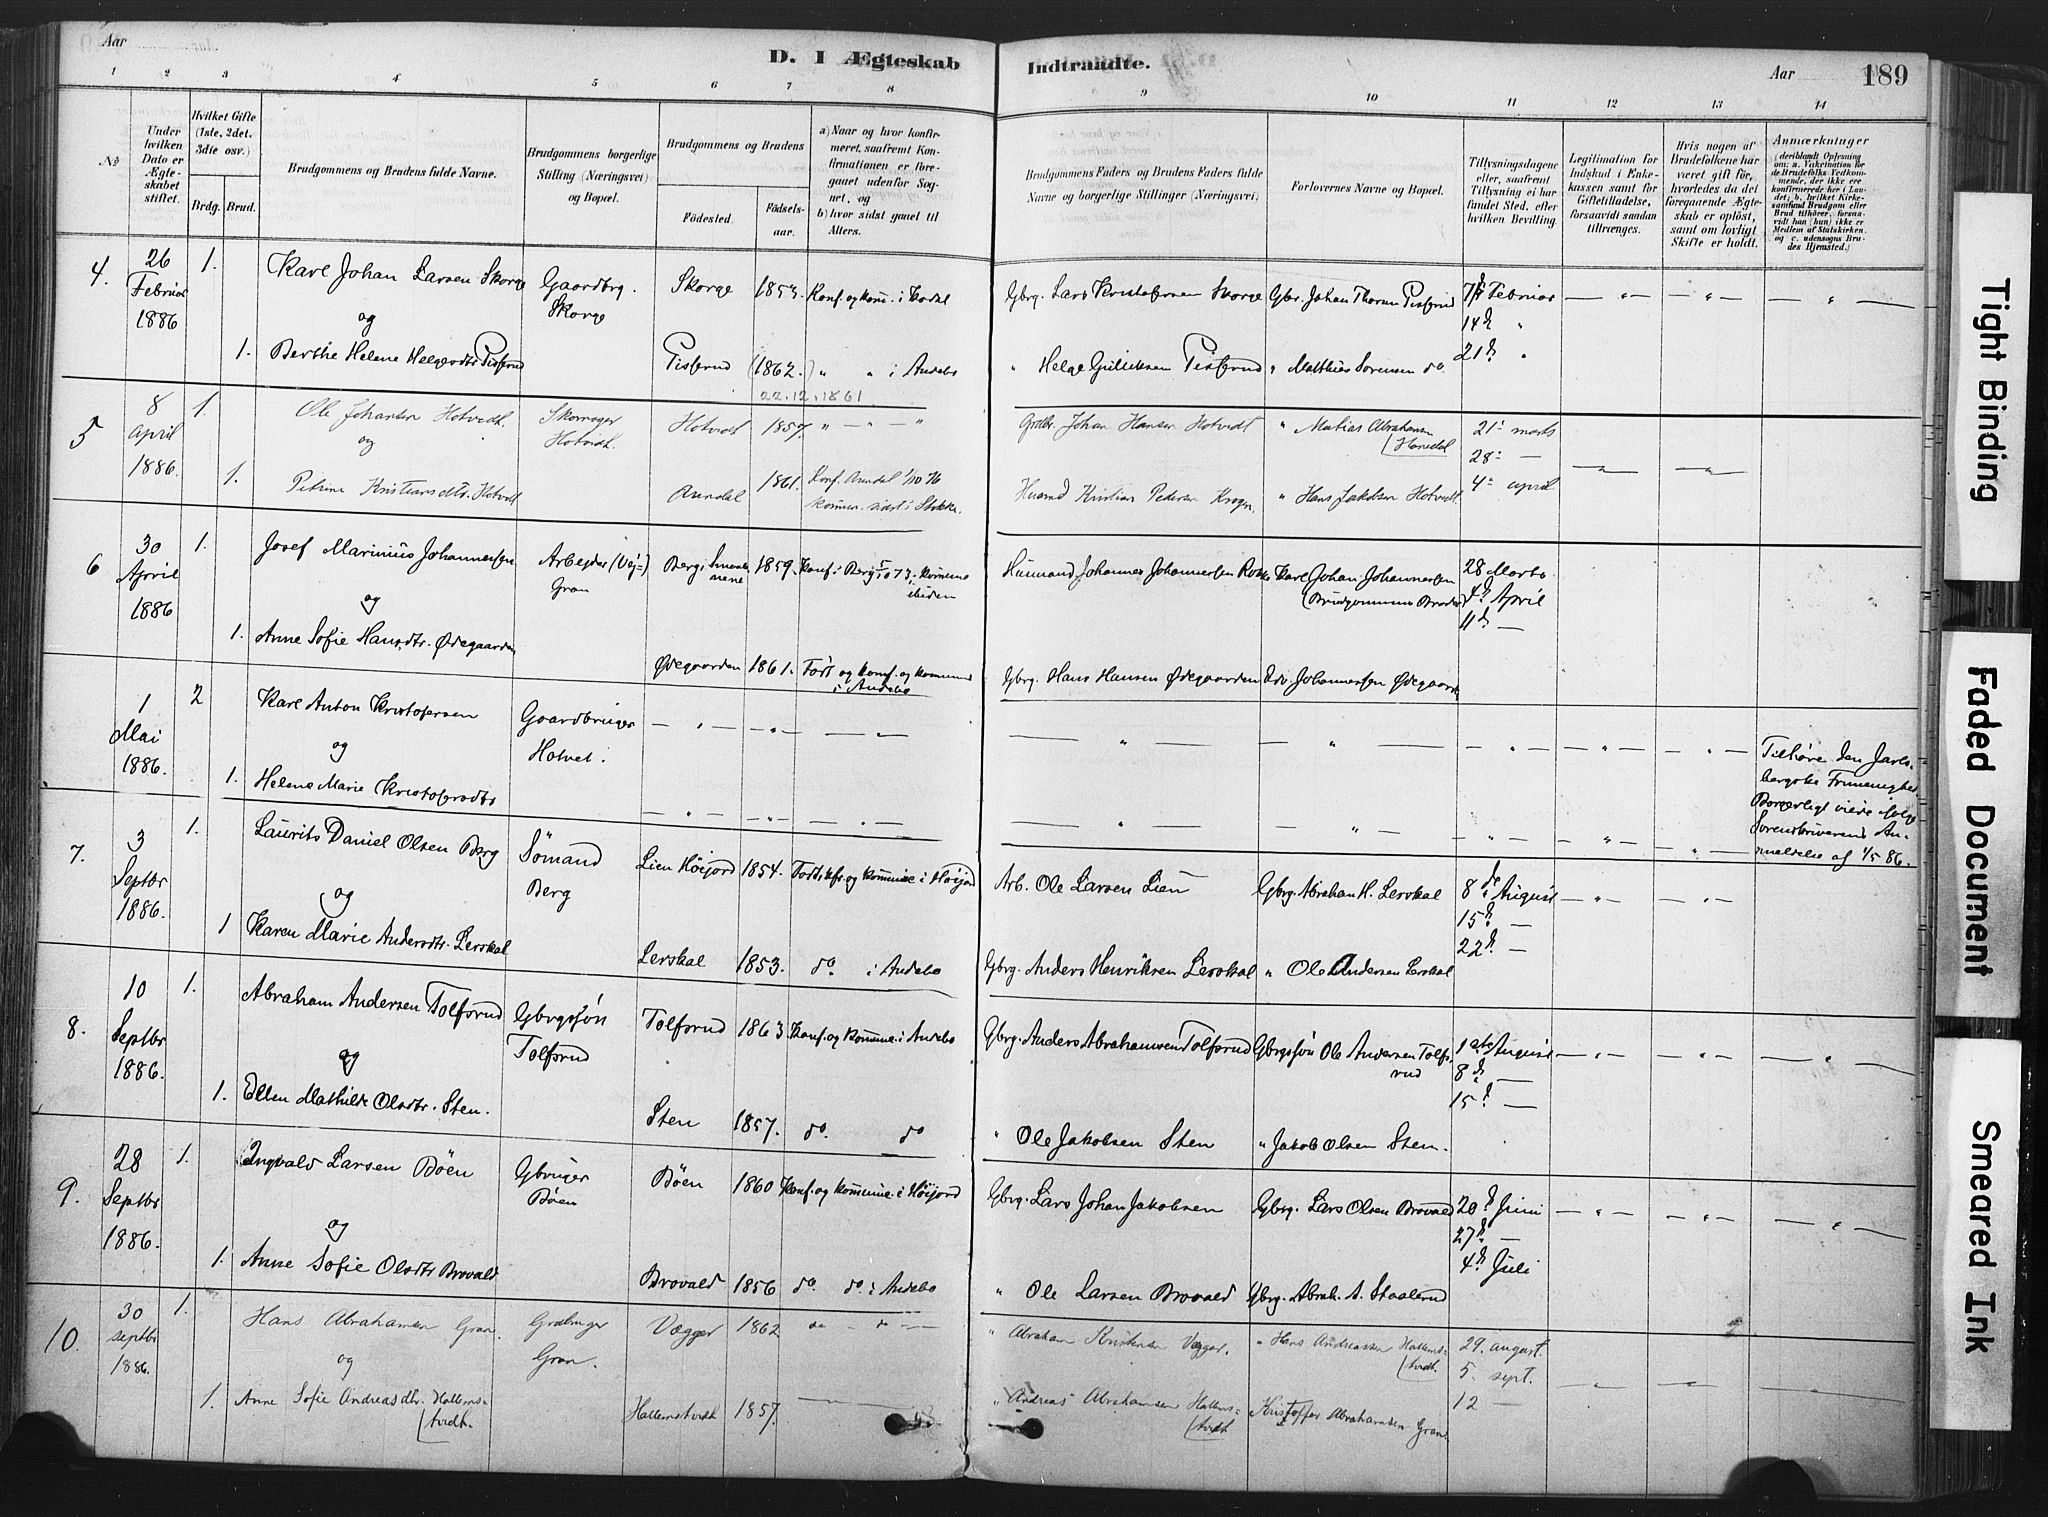 Aar
D. I Ægteskab
Indtraadte.
Aar
189
1 2 3 4 5 6 7 8 9 10 11 12 13 14
No
Under hvilken Dato er Ægteskabet stiftet.
Hvilket Gifte (1ste, 2det, 3die osv.)
Brdg. Brud.
Brudgommens og Brudens fulde Navne.
Brudgommens borgerlige Stilling (Næringsvei) og Bopæl.
Brudgommens og Brudens
Fødested.
Fødselsaar.
a) Naar og hvor konfirmeret, saafremt Konfirmationen er foregaaet udenfor Sognet, og
b) hvor sidst gaaet til Alters.
Brudgommens Faders og Brudens Faders fulde Navne og borgerlige Stillinger (Næringsvei)
Forlovernes Navne og Bopæl.
Tillysningsdagene eller, saafremt Tillysning ei har fundet Sted, efter hvilken Bevilling.
Legitimation for Indskud i Enkekassen samt for Giftetilladelse, forsaavidt saadan tiltrænges.
Hvis nogen af Brudefolkene har været gift før, hvorledes da det foregaaende Ægteskab er opløst, samt om lovligt Skifte er holdt.
Anmærkninger
(deriblandt Opfyining om: a. Vakcination for de Brudefolks Vedkommende, der ikke ere konfirmerede her i Landet; b. hvilket Kirkesamfund Brudgom eller Brud tilhører, forsaavidt han (hun) ikke er Medlem af Statskirken, og c. udensogns Brudes Hjemsted.)
4. 26 Februar 1886 1. Karl Johan Larsen Skorge Gaardbrg. Skorge Skorge 1853. Konf. og kom. i Kodal Gbrg. Lars Kristofersen Skorge Gbr. Johan Thorsen Tisfrud 7de Februar
og 14d "
1. Berthe Helene Helgesdtr. Tisfrud Tisfrud (1862.) " " i Andebo " Helge Gulliksen Tisfrud " Matthias Sørensen do 21d "
22.12.1861
5 8 April 1886. 1. Ole Johansen Hotvedt. Skomager Hotvedt. Hotvedt 1857. " — " — " Grdbr. Johan Hansen Hotvedt " Matias Abrahamsen 21: marts
og 28: —
1. Petrine Kristiansdtr. Hotvedt Arendal 1861. Konf. Arendal 1/10 76 Husmd Kristian Pedersen " Hans Jakobsen Hotvedt. 4: april
kommun. sidst i Stokke.
6 30 April 1886 1. Josef Marinius Johannessen Arbeider (Vei=) Gran Berg i 1859. Konf. i Berg 5/10 73, kommune Husmand Johannes Johannessen Karl Johan Johannessen 28 Marts
og (Brudgommens Broder) 4d April
11d —
1. Anne Sofie Hansdtr. Ødegaarden Ødegaarden 1861. Født og konf. og kommune i Andebo Gbrg. Hans Hansen Ødegaarden Johannessen Ødegaarden
1 Mai 1886. 2 Karl Anton Kristofersen Gaardbruger Hotvet. — " — — " — — " —
og
1. Helene Marie Kristofersdtr — " — — " — — " —
Tilhøre den Jarlsbergske Frimenighed. Borgerligt viede ifølge Sorenskriverens Anmeldelse af 1/5 86.
7. 3 Septbr 1886. 1. Laurits Daniel Olsen Berg Sømand Berg Lien Høijord 1854. Født, kfr. og kommune i Høijord Arb. Ole Larsen Lien Gbrg. Abraham H. Lerskal 8de August
og 15d —
1 Karen Marie Andersdtr. Lerskal Lerskal 1853. do i Andebo Gbrg. Anders Henriksen Lerskal " Ole Andersen Lerskal 22d —
8. 10 Septbr 1886. 1. Abraham Andersen Tolfsrud Gbrgssøn Tolfsrud Tolfsrud 1863. Konf. og kommune i Andebo Gbrg. Anders Abrahamsen Tolfsrud Gbrgssøn Ole Andersen Tolfsrud 1ste August
og 8d —
1. Ellen Mathilde Olsdtr. Sten. Sten 1857. do. do " Ole Jakobsen Sten " Jakob Olsen Sten. 15d —
9. 28 Septbr 1886. 1. Ingvald Larsen Bøen Gbruger Bøen Bøen 1860 Konf. og kommune i Høijord Gbrg. Lars Johan Jakobsen Gbrg. Lars Olsen Brovald 20d Juni
og 27d —
1. Anne Sofie Olsdtr Brovald Brovald 1856 do. do. i Andebo " Ole Larsen Brovald Gbrg. Abrah. A. Staalerud 4d Juli
10. 30 septbr 1886. 1. Hans Abrahamsen Gran. Grdbruger Gran. Vegger 1862 do " do — " Abraham Kristensen Vegger. " Hans Andreassen Hallemstvedt. 29. august.
og 5. sept.
1. Anne Sofie Andreasdtr. Hallemstvedt. Hallemstvedt 1857. — — " Andreas Abrahamsen Hallemstvedt Kristoffer Abrahamsen Gran. 12 —
Tight Binding
Faded Document
Smeared Ink